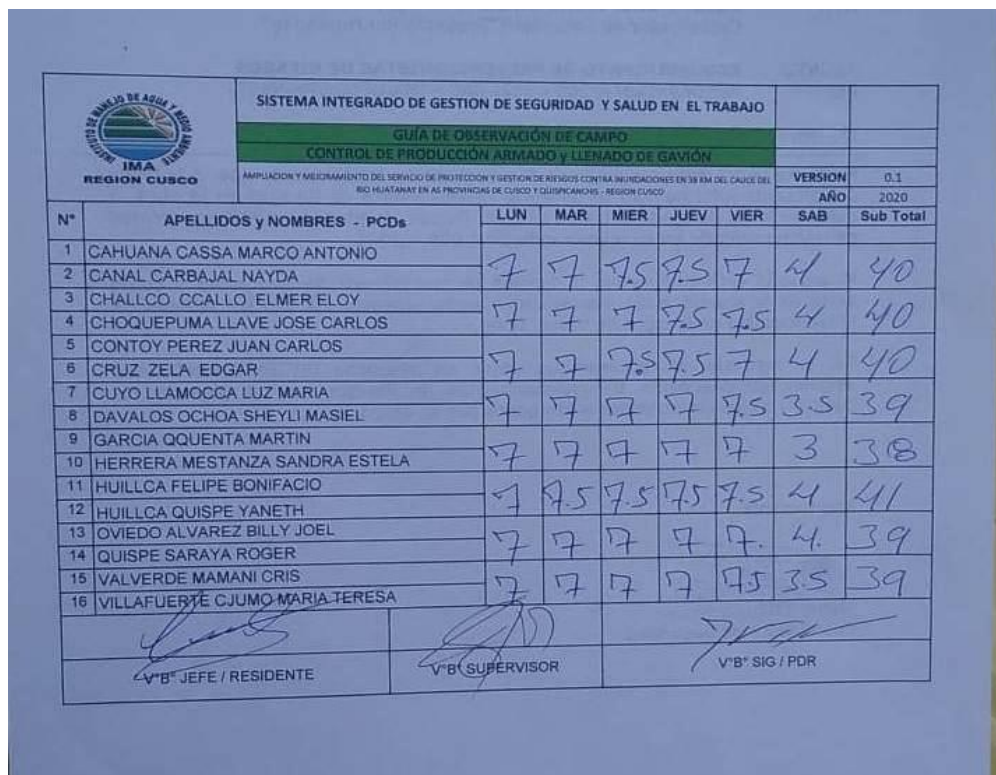 INSTITUTO DE MANEJO DE AGUA Y MEDIO AMBIENTE
IMA
REGION CUSCO
SISTEMA INTEGRADO DE GESTION DE SEGURIDAD Y SALUD EN EL TRABAJO
GUÍA DE OBSERVACIÓN DE CAMPO
CONTROL DE PRODUCCIÓN ARMADO y LLENADO DE GAVIÓN
AMPLIACION Y MEJORAMIENTO DEL SERVICIO DE PROTECCION Y GESTION DE RIESGOS CONTRA INUNDACIONES EN 38 KM DEL CAUCE DEL
RIO HUATANAY EN AS PROVINCIAS DE CUSCO Y QUISPICANCHIS - REGION CUSCO
VERSION 0.1
AÑO 2020
N° APELLIDOS y NOMBRES - PCDs LUN MAR MIER JUEV VIER SAB Sub Total
1 CAHUANA CASSA MARCO ANTONIO
2 CANAL CARBAJAL NAYDA
7 7 7.5 7.5 7 4 40
3 CHALLCO CCALLO ELMER ELOY
4 CHOQUEPUMA LLAVE JOSE CARLOS
7 7 7 7.5 7.5 4 40
5 CONTOY PEREZ JUAN CARLOS
6 CRUZ ZELA EDGAR
7 7 7.5 7.5 7 4 40
7 CUYO LLAMOCCA LUZ MARIA
8 DAVALOS OCHOA SHEYLI MASIEL
7 7 7 7 7.5 3.5 39
9 GARCIA QQUENTA MARTIN
10 HERRERA MESTANZA SANDRA ESTELA
7 7 7 7 7 3 38
11 HUILLCA FELIPE BONIFACIO
12 HUILLCA QUISPE YANETH
7 7.5 7.5 7.5 7.5 4 41
13 OVIEDO ALVAREZ BILLY JOEL
14 QUISPE SARAYA ROGER
7 7 7 7 7. 4. 39
15 VALVERDE MAMANI CRIS
16 VILLAFUERTE CJUMO MARIA TERESA
7 7 7 7 7.5 3.5 39
V°B° JEFE / RESIDENTE
V°B° SUPERVISOR
V°B° SIG / PDR